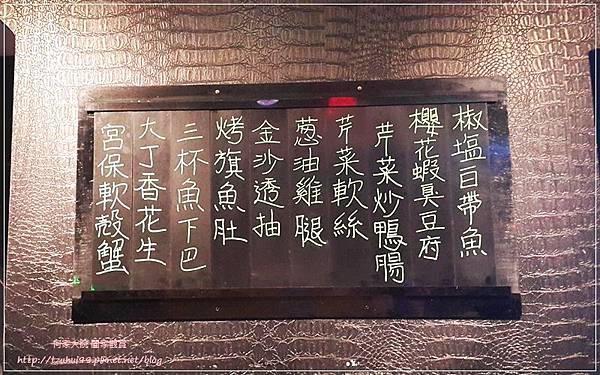 椒塩白帶魚
櫻花蝦臭豆腐
芹菜炒鴨腸
芹菜軟絲
蔥油雞腿
金沙透抽
烤旗魚肚
三杯魚下巴
大丁香花生
宮保軟殼蟹